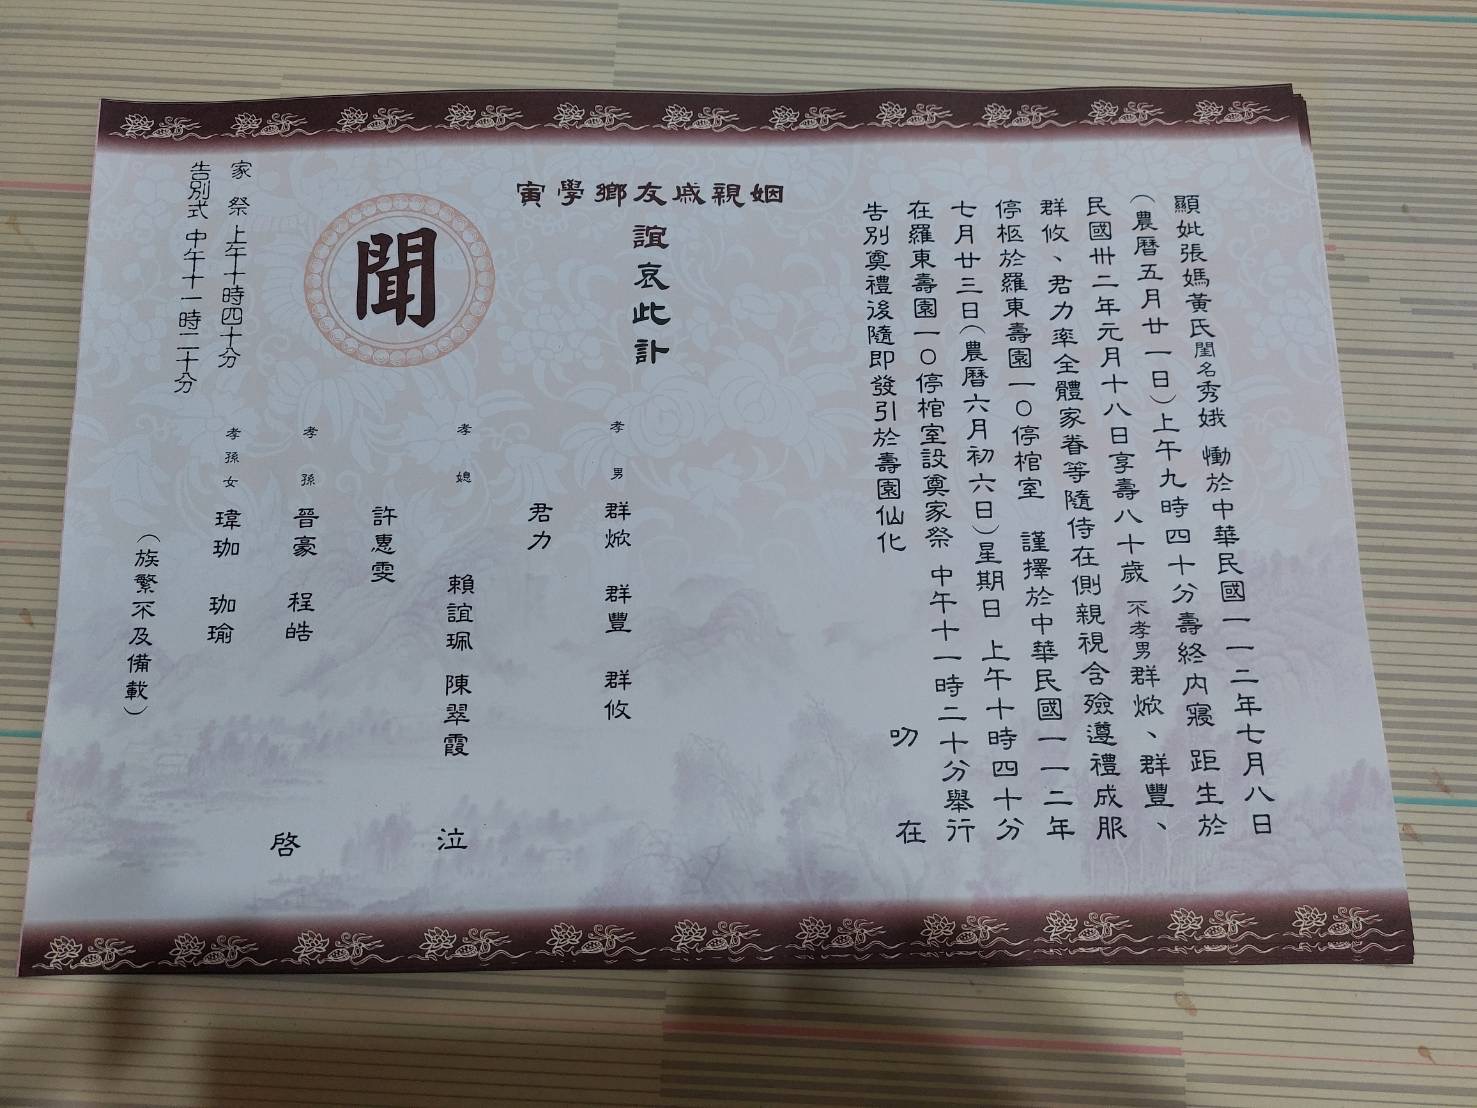 顯妣張媽黃氏閨名秀娥 慟於中華民國一一二年七月八日
(農曆五月廿一日)上午九時四十分壽終內寢 距生於
民國卅二年元月十八日享壽八十歲 不孝男群焮、群豐、
群攸、君力率全體家眷等隨侍在側親視含殮遵禮成服
停柩於羅東壽園一〇停棺室 謹擇於中華民國一一二年
七月廿三日(農曆六月初六日)星期日 上午十時四十分
在羅東壽園一〇停棺室設奠家祭 中午十一時二十分舉行
告別奠禮後隨即發引於壽園仙化
叨 在
姻親戚友鄉學寅
誼哀此訃
聞
孝男 群焮 群豐 群攸
君力
孝媳 賴誼珮 陳翠霞
許惠雯
孝孫 晉豪 程皓
孝孫女 瑋珈 珈瑜
(族繁不及備載)
泣
啓
家祭 上午十時四十分
告別式 中午十一時二十分